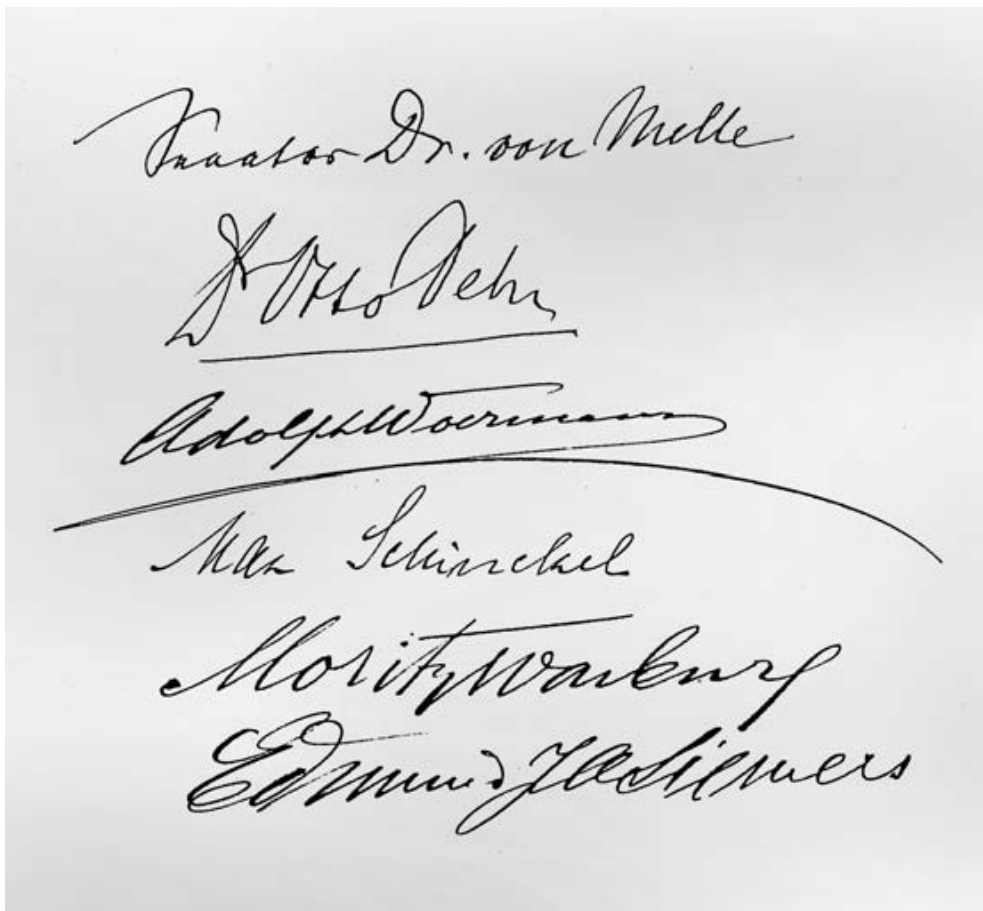 Senator Dr. von Melle
Dr Otto Dehn
Adolph Woermann
Max Schinckel
Moritz Warburg
Edmund J A Siemers